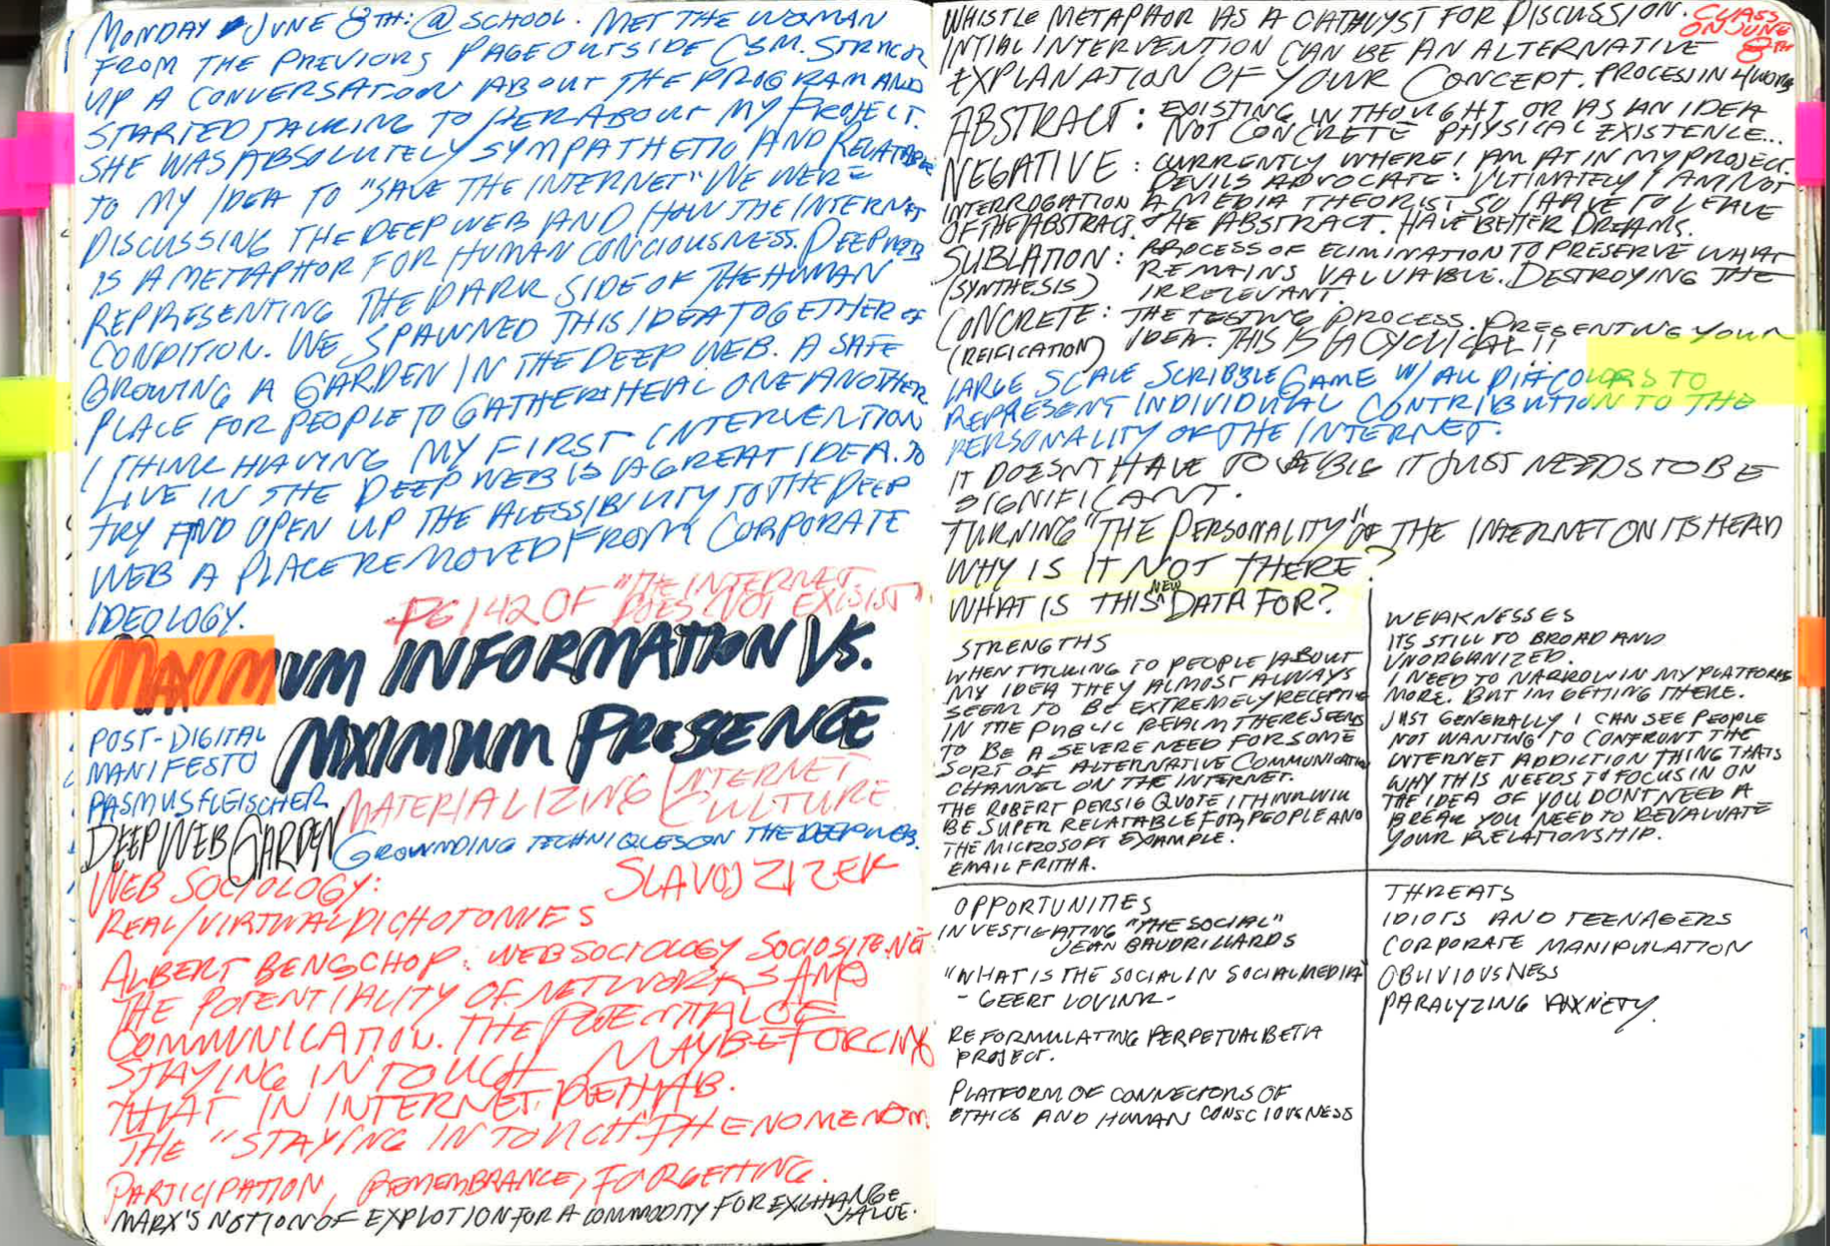 MONDAY JUNE 8TH: @ SCHOOL. MET THE WOMAN
FROM THE PREVIOUS PAGE OUTSIDE CSM. STRUCK
UP A CONVERSATION ABOUT THE PROGRAM AND
STARTED TALKING TO HER ABOUT MY PROJECT.
SHE WAS ABSOLUTELY SYMPATHETIC AND RELATABLE
TO MY IDEA TO "SAVE THE INTERNET" WE WERE
DISCUSSING THE DEEP WEB AND HOW THE INTERNET
IS A METAPHOR FOR HUMAN CONCIOUSNESS. DEEP WEB
REPRESENTING THE DARK SIDE OF THE HUMAN
CONDITION. WE SPAWNED THIS IDEA TOGETHER OF
GROWING A GARDEN IN THE DEEP WEB. A SAFE
PLACE FOR PEOPLE TO GATHER & HEAL ONE ANOTHER
I THINK HAVING MY FIRST INTERVENTION
LIVE IN THE DEEP WEB IS A GREAT IDEA. TO
TRY AND OPEN UP THE ACESSIBILITY TO THE DEEP
WEB A PLACE REMOVED FROM CORPORATE
IDEOLOGY.
PG 142 OF "THE INTERNET
DOES NOT EXISIST"
MAXIMUM INFORMATION VS.
MXIMUM PRESENCE
POST-DIGITAL
MANIFESTO
RASMUS FLEISCHER
MATERIALIZING INTERNET
CULTURE
DEEP WEB GARDEN
GROWNDING TECHNIQUES ON THE DEEP WEB.
WEB SOCIOLOGY:
SLAVOJ ZIZEK
REAL/VIRTUAL DICHOTOMIES
ALBERT BENSCHOP: WEBSOCIOLOGY SOCIOSITE.NET
THE POTENTIALITY OF NETWORKS AND
COMMUNICATION. THE POTENTIAL OF
STAYING IN TOUCH MAYBE FORCING
THAT IN INTERNET REHAB.
THE "STAYING IN TOUCH" PHENOMENON
PARTICIPATION, REMEMBRANCE, FORGETTING.
MARX'S NOTION OF EXPLOTION FOR A COMMODITY FOR EXCHANGE
VALUE.
WHISTLE METAPHOR AS A CATALYST FOR DISCUSSION.
CLASS
ON JUNE
8TH
INTIAL INTERVENTION CAN BE AN ALTERNATIVE
EXPLANATION OF YOUR CONCEPT. PROCESS IN 4 WORDS
ABSTRACT: EXISTING IN THOUGHT OR AS AN IDEA
NOT CONCRETE PHYSICAL EXISTENCE...
NEGATIVE: CURRENTLY WHERE I AM AT IN MY PROJECT.
DEVILS ADVOCATE: ULTIMATELY I AM NOT
INTERROGATION A MEDIA THEORIST SO I HAVE TO LEAVE
OF THE ABSTRACT. THE ABSTRACT. HAVE BETTER DREAMS.
SUBLATION: PROCESS OF ELIMINATION TO PRESERVE WHAT
(SYNTHESIS) REMAINS VALUABLE. DESTROYING THE
IRRELEVANT.
CONCRETE: THE TESTING PROCESS. PRESENTING YOUR
(REIFICATION) IDEA. THIS IS A CYCLICAL!!
LARGE SCALE SCRIBBLE GAME W/ ALL DIFF COLORS TO
REPRESENT INDIVIDUAL CONTRIBUTION TO THE
PERSONALITY OF THE INTERNET.
IT DOESNT HAVE TO BE BIG IT JUST NEEDS TO BE
SIGNIFICANT.
TURNING "THE PERSONALITY" OF THE INTERNET ON ITS HEAD
WHY IS IT NOT THERE?
WHAT IS THIS NEW DATA FOR?
STRENGTHS
WHEN TALKING TO PEOPLE ABOUT
MY IDEA THEY ALMOST ALWAYS
SEEM TO BE EXTREMELY RECEPTIVE
IN THE PUBLIC REALM THERE SEEMS
TO BE A SEVERE NEED FOR SOME
SORT OF ALTERNATIVE COMMUNICATION
CHANNEL ON THE INTERNET.
THE ROBERT PERSIG QUOTE I THINK WILL
BE SUPER RELATABLE FOR PEOPLE AND
THE MICROSOFT EXAMPLE.
EMAIL FRITHA.
WEAKNESSES
ITS STILL TO BROAD AND
UNORGANIZED.
I NEED TO NARROW IN MY PLATFORMS
MORE. BUT IM GETTING THERE.
JUST GENERALLY I CAN SEE PEOPLE
NOT WANTING TO CONFRONT THE
INTERNET ADDICTION THING THATS
WHY THIS NEEDS TO FOCUS IN ON
THE IDEA OF YOU DONT NEED A
BREAK YOU NEED TO REVALUATE
YOUR RELATIONSHIP.
OPPORTUNITIES
INVESTIGATING "THE SOCIAL"
JEAN BAUDRILLARDS
"WHAT IS THE SOCIAL IN SOCIAL MEDIA"
- GEERT LOVINK -
REFORMULATING PERPETUAL BETA
PROJECT.
PLATFORM OF CONNECTORS OF
ETHICS AND HUMAN CONSCIOUSNESS
THREATS
IDIOTS AND TEENAGERS
CORPORATE MANIPULATION
OBLIVIOUSNESS
PARALYZING ANXIETY.